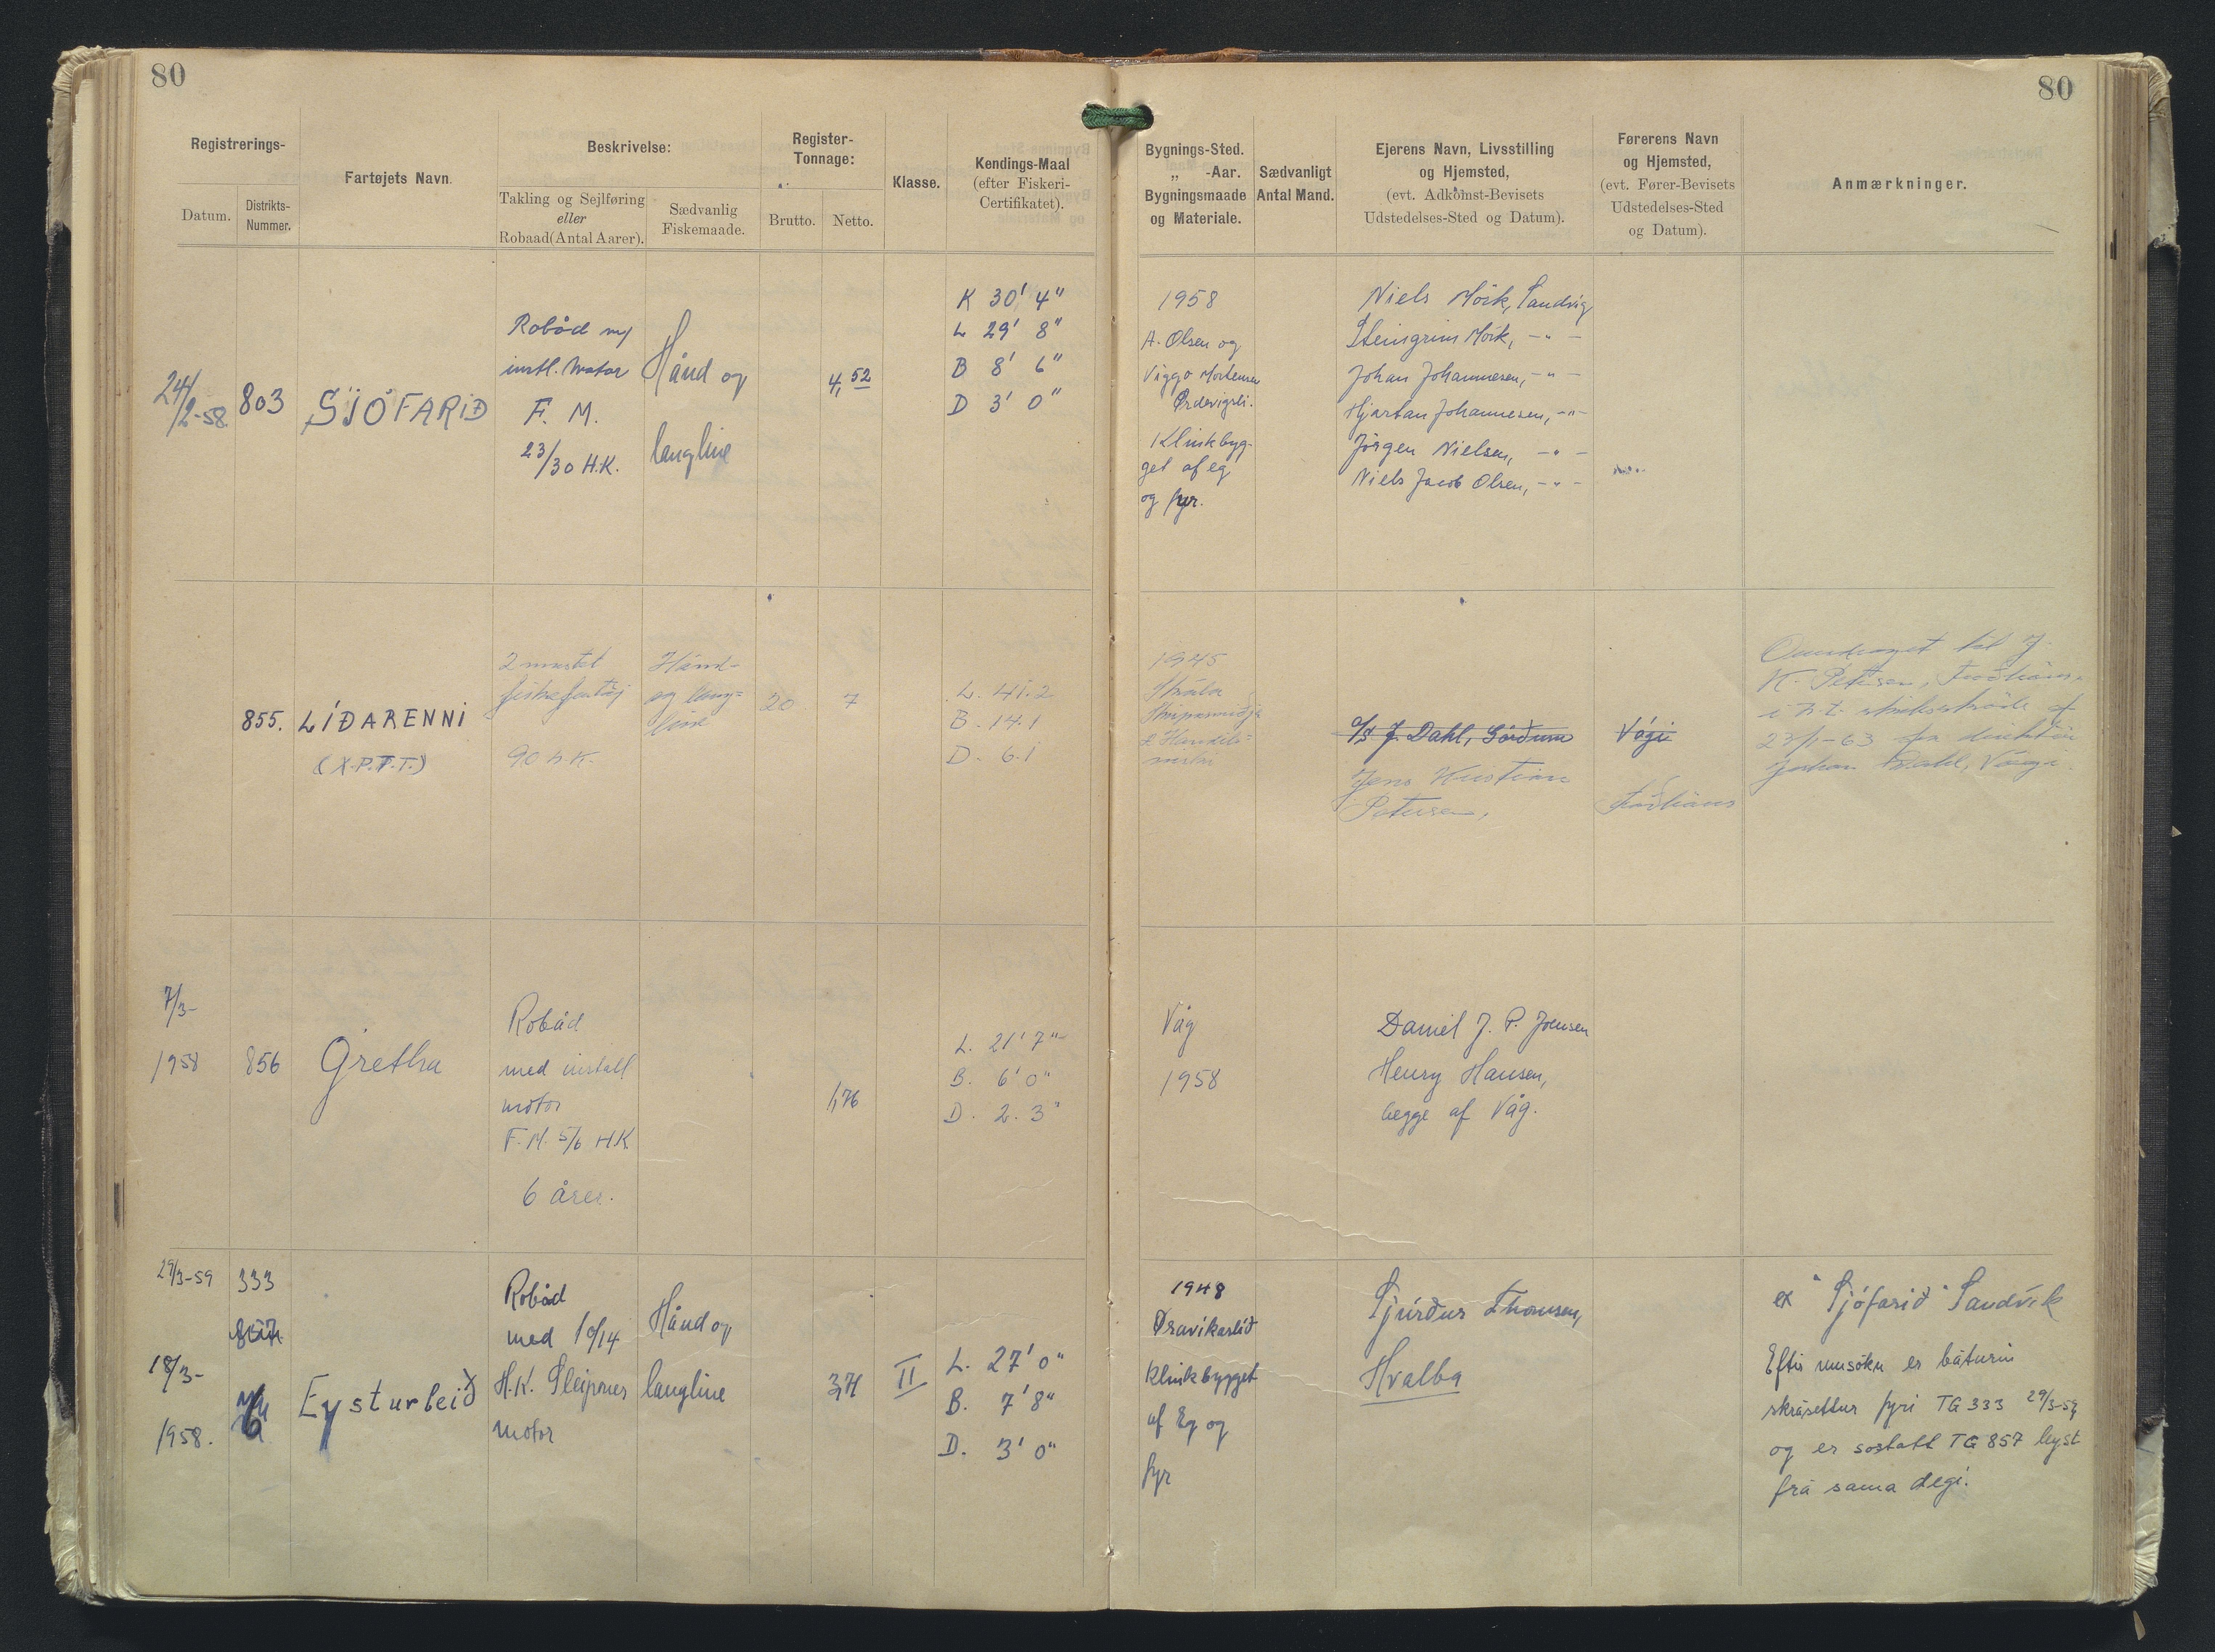 80
80
Registrerings-
Datum.
Distrikts-
Nummer.
Fartøjets Navn.
Beskrivelse:
Takling og Sejlføring
eller
Robaad(Antal Aarer).
Sædvanlig
Fiskemaade.
Register-
Tonnage:
Brutto.
Netto.
Klasse.
Kendings-Maal
(efter Fiskeri-
Certifikatet).
Bygnings-Sted.
„ -Aar.
Bygningsmaade
og Materiale.
Sædvanligt
Antal Mand.
Ejerens Navn, Livsstilling
og Hjemsted,
(evt. Adkomst-Bevisets
Udstedelses-Sted og Datum).
Førerens Navn
og Hjemsted,
(evt. Fører-Bevisets
Udstedelses-Sted
og Datum).
Anmærkninger.
24/2-58.
803
SJÓFARIÐ
Robåd m/
instl. Motor
F. M.
23/30 H.K.
Hånd og
langline
4,52
K 30' 4"
L 29' 8"
B 8' 6"
D 3' 0"
1958
A. Olsen og
Viggo Mortensen
Klinkbyg-
get af eg
og fyr.
Niels Mörk, Sandvig
Steingrim Mörk, -"-
Johan Johannesen, -"-
Hjartan Johannesen, -"-
Jörgen Nielsen, -"-
Niels Jacob Olsen, -"-
855.
LÍÐARENNI
(X.P.T.T.)
2 mastet
fiskefartöj
90 h.K.
Hånd-
og lang=
line
20
7
L. 41.2
B. 14.1
D. 6.1
1945
Skála
Skipasmiðja
P/f J. Dahl, Görðum
Jens Kristian
Petersen,
Vági
Oméndraget til J.
K. Petersen,
23/1-63
Johan Dahl, Vági.
7/3-
1958
856
Gretha
Robåd
med install
motor
F. M. 5/6 H.K
6 årer.
1,76
L. 21' 7"
B. 6' 0"
D. 2. 3"
Våg
1958
Daniel J. P. Joensen
Henry Hansen,
begge af Våg.
29/3-59
333
857
18/3-
1958.
Eysturleið
Robåd
med 10/14
H.K. Sleipner
motor
Hånd og
langline
3,71
II
L. 27' 0"
B. 7' 8"
D. 3' 0"
1948
Øravikarlið
Klinkbygget
af Eg og
fyr
Sjúrður Thomsen,
Hvalba
ex "Sjófarið" Sandvík
Eftir umsókn er báturin
skrásettur fyri TG 333 29/3-59
og er sostatt TG 857 leyst
frá sama degi.